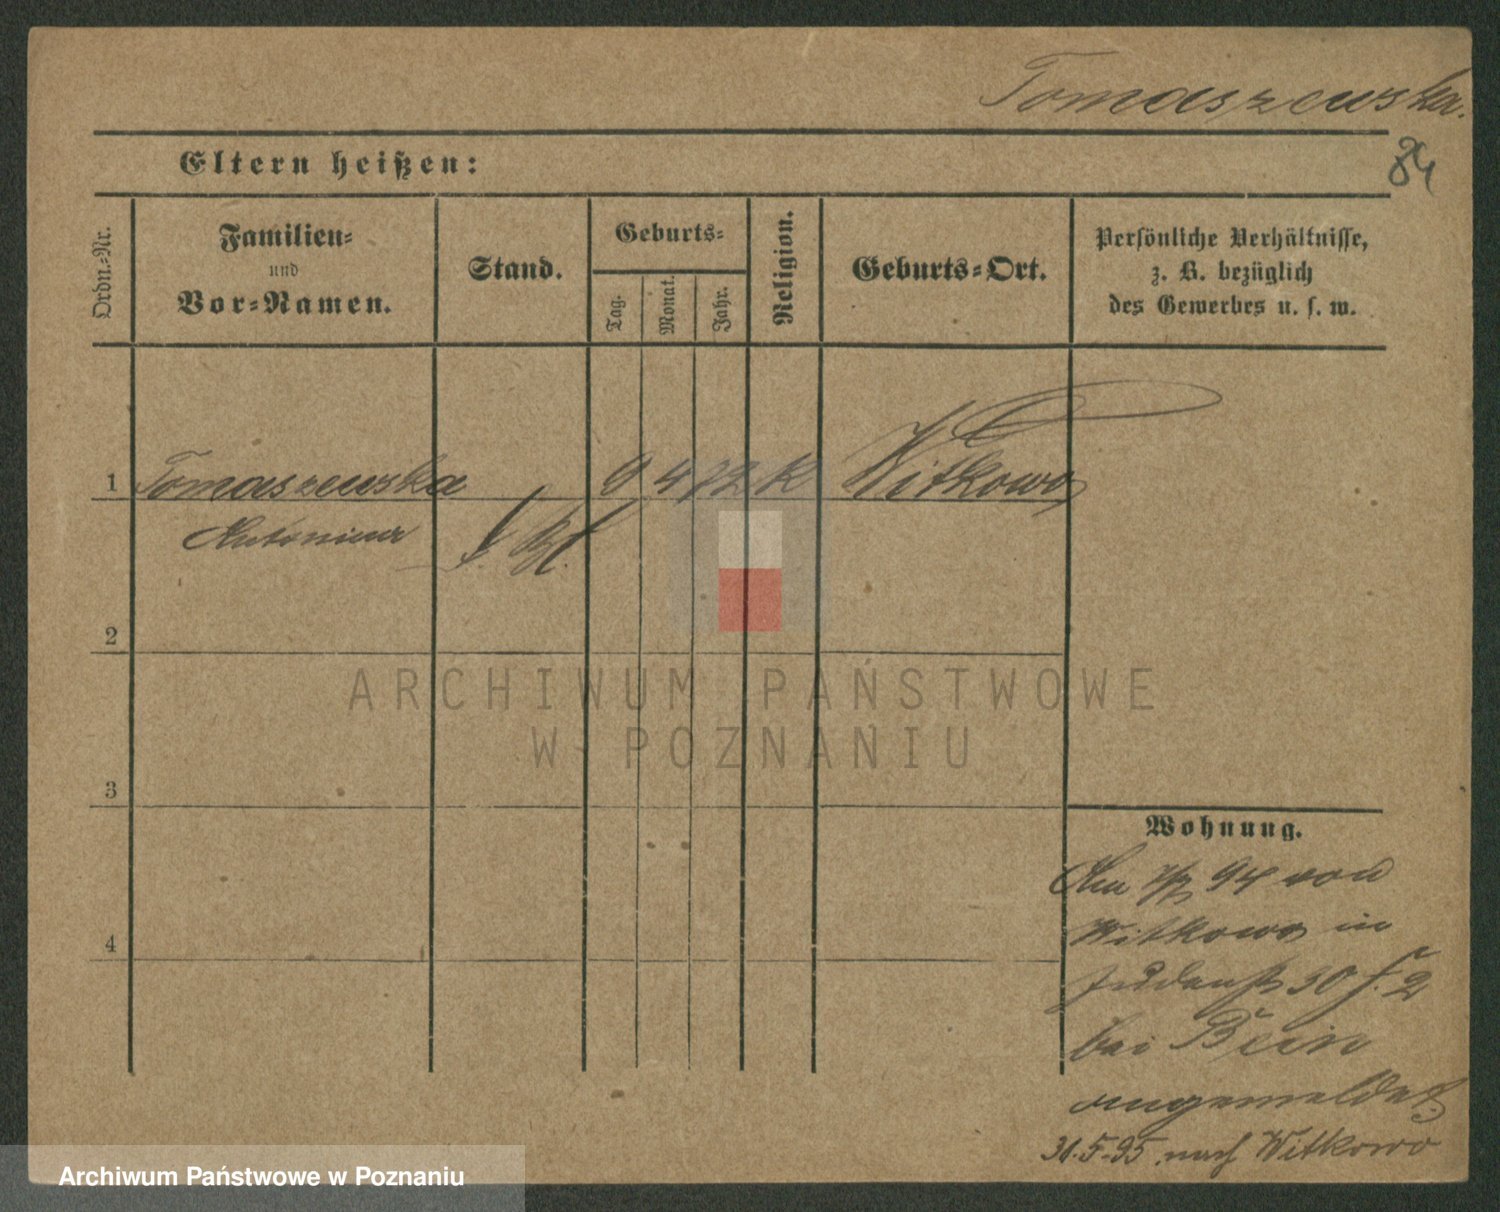 Tomaszewska.
84
Eltern heißen:
Ordn.-Nr.
Familien-
und
Vor-Namen.
Stand.
Geburts-
Tag.
Monat.
Jahr.
Religion.
Geburts-Ort.
Persönliche Verhältnisse,
z. B. bezüglich
des Gewerbes u. s. w.
1 Tomaszewska 9 4 72 K Witkowo
Antonina
2
ARCHIWUM PAŃSTWOWE
W POZNANIU
3
Wohnung.
Am 94 von
4
Witkowo in
Judenstr 30
bei Bein
angemeldet
31.5.95 nach Witkowo
Archiwum Państwowe w Poznaniu